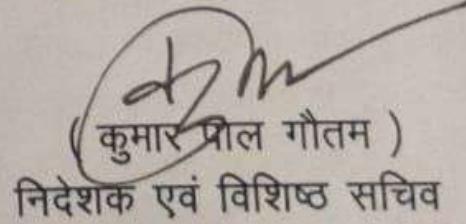 ( कुमार पाल गौतम )
निदेशक एवं विशिष्ठ सचिव